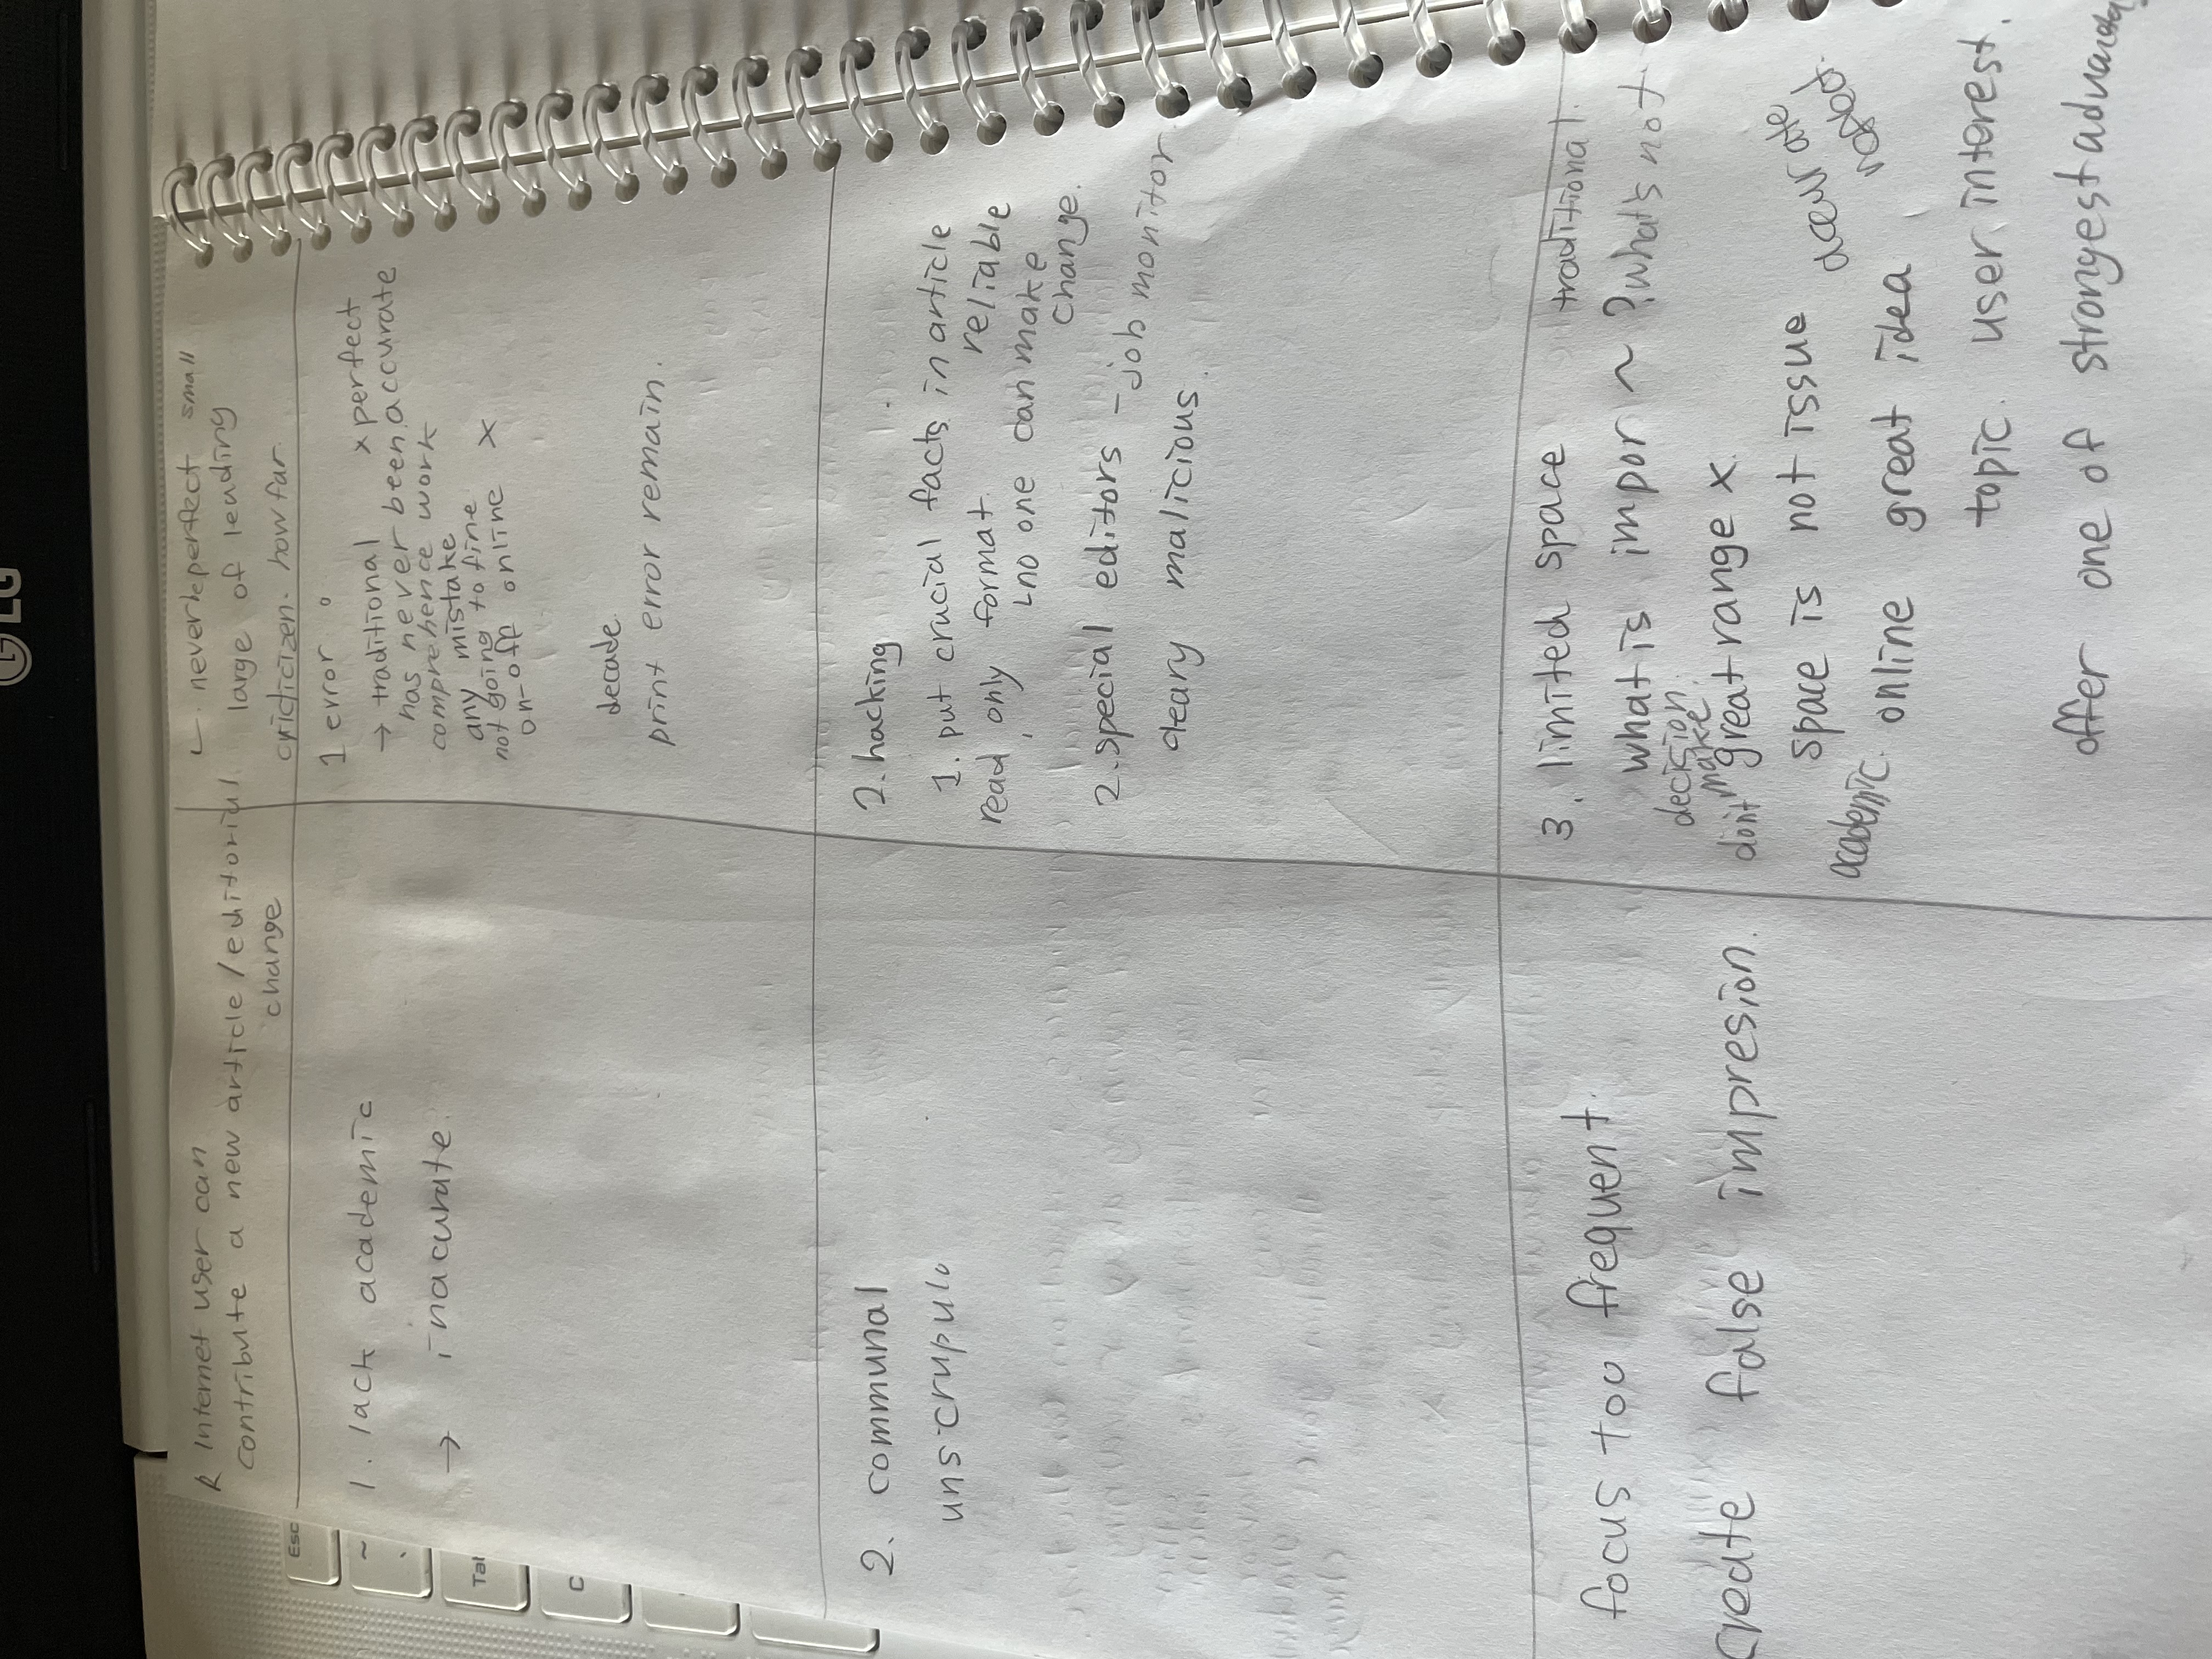 LG
Esc
~
`
Tal
C
R Internet user can
contribute a new article/editorial.
change
1. lack academic
→ inacurate.
2. communal
unscrupulo
focus too frequent.
create false impresion.
never perfect small
large of leading
how far.
1 error
→ traditional x perfect
has never been accurate
comprehence work
any mistake
not going to fine
on-off online x
decade.
print error remain.
2. hacking
1. put crucial facts in article
read, only format. reliable
no one can make
change.
2. special editors - job monitor
cleary malicious.
3. limited space traditional.
what is impor ~ ? what's not
decision
don't make great range x.
space is not issue
academic. online great idea
topic. user interest.
offer one of strongest advantag